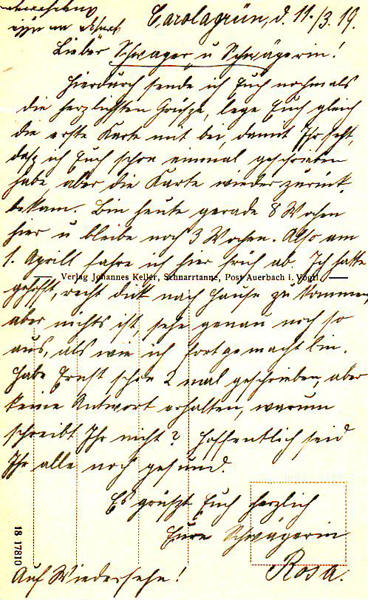 Carolagrün, d. 11./3. 19.
Lieber Schwager u Schwägerin!
Hierdurch sende ich Euch nochmals
die herzlichsten Grüße, lege Euch gleich
die erste Karte mit bei, damit Ihr seht,
daß ich Euch schon einmal geschrieben
habe aber die Karte wieder zurück
bekam. Bin heute gerade 8 Wochen
hier u bleibe noch 3 Wochen. Also am
1. Aprill fahre ich hier früh ab. Ich hatte
Verlag Johannes Keller, Schnarrtanne, Post Auerbach i. Vogtl.
gehofft recht dick nach Hause zu kommen
aber nichts ist, sehe genau noch so
aus, als wie ich fortgemacht bin.
Habe Ernst schon 2 mal geschrieben, aber
keine Antwort erhalten, warum
schreibt Ihr nicht? Hoffentlich seid
Ihr alle noch gesund.
Es grüßt Euch herzlich
Eure Schwägerin
Rosa.
Auf Wiedersehn!
18 17810